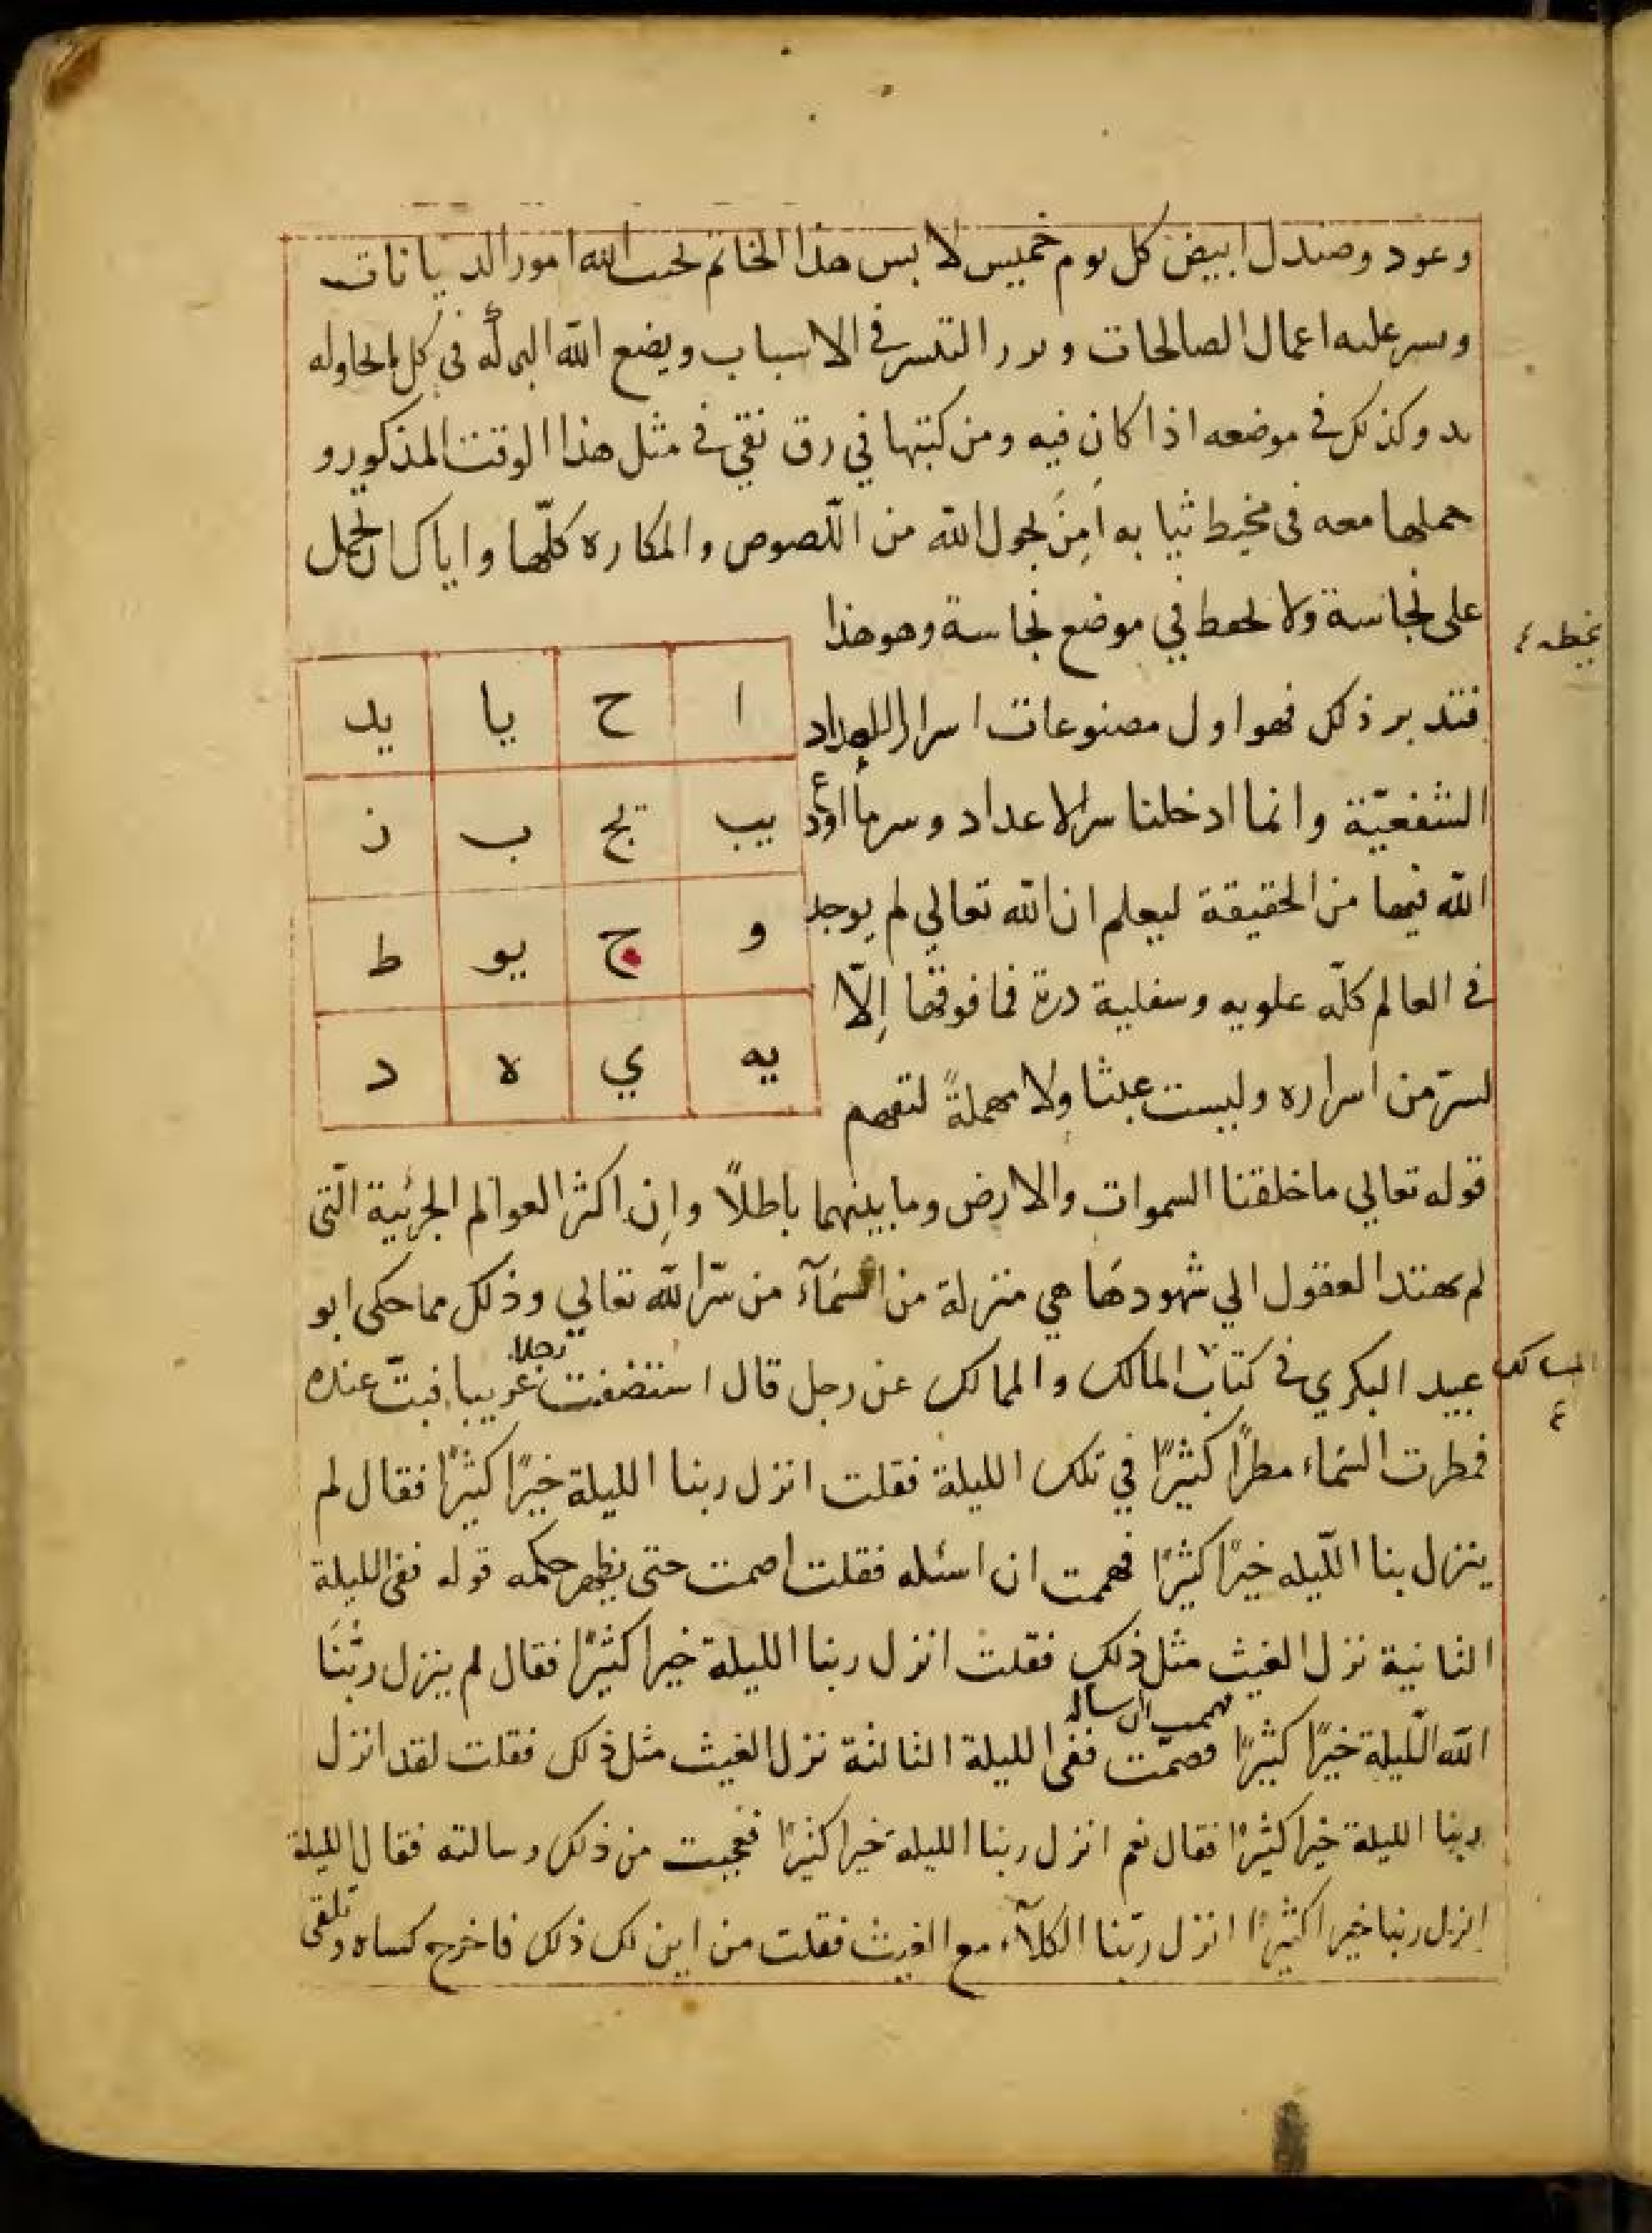 وعود وصندل ابيض كل يوم خميس لابس هذا الخاتم لحب الله امور الديانات
ويسر عليه اعمال الصالحات في الاسباب ويضع الله البركة في كل ما يحاوله
يد وكذلك في موضعه اذا كان فيه ومن كتبها في رق نقي في مثل هذا الوقت المذكور و
حملها معه في مخيط ثيابه اَمِنَ بحول الله من اللّصوص والمكاره كلّها واياك ان تحمل
على نجاسة ولا في موضع نجاسة وهو هذا
بخيطه ٤
ا ح يا يد
يب يج ب ز
و ج يو ط
يه ي ه د
فتدبر ذلك فهو اول مصنوعات اسرار الاعداد
الشفعيّة وانما ادخلنا سر الاعداد وسر ما اودع
الله فيها من الحقيقة ليعلم ان الله تعالي لم يوجد
في العالم كلّه علويه وسفلية درة فما فوقها اِلّا
لسرّ من اسراره وليست عبثا ولا مهملةً لتفهم
قوله تعالي ما خلقنا السموات والارض وما بينهما باطلاً واِن اكثر العوالم الجزئية الّتي
لم تهتد العقول الي شهودها هي منزلة من السّمآء من سّر الله تعالي وذلك مما حكى ابو
عبيد البكري في كتاب المالك والممالك عن رجل قال استضفت رجلا غريبا فبتّ عنده
المسالك
٤
فمطرت السّماء مطرًا كثيرًا في تلك الليلة فقلت انزل ربنا الليلة خيرًا كثيرًا فقال لم
ينزل بنا اللّيله خيرًا كثيرًا فهممت ان اسئله فقلت اصمت حتى يظهر حكمه قوله ففي الليلة
الثانية نزل الغيث مثل ذلك فقلت انزل ربنا الليلة خيرا كثيرًا فقال لم ينزل ربّنَا
الله اللّيلة خيرًا كثيرًا فهممت ان اساله فصمّت ففي الليلة الثالثة نزل الغيث مثل ذلك فقلت لقد انزل
ربنا الليلة خيرا كثيرًا فقال نعم انزل ربنا الليلة خيرا كثيرًا فعجبت من ذلك وسالته فقال الليلة
انزل ربنا خيرا كثيرًا انزل ربّنا الكلآء مع الغيث فقلت من اين لك ذلك فاخرج كساه وتلقى